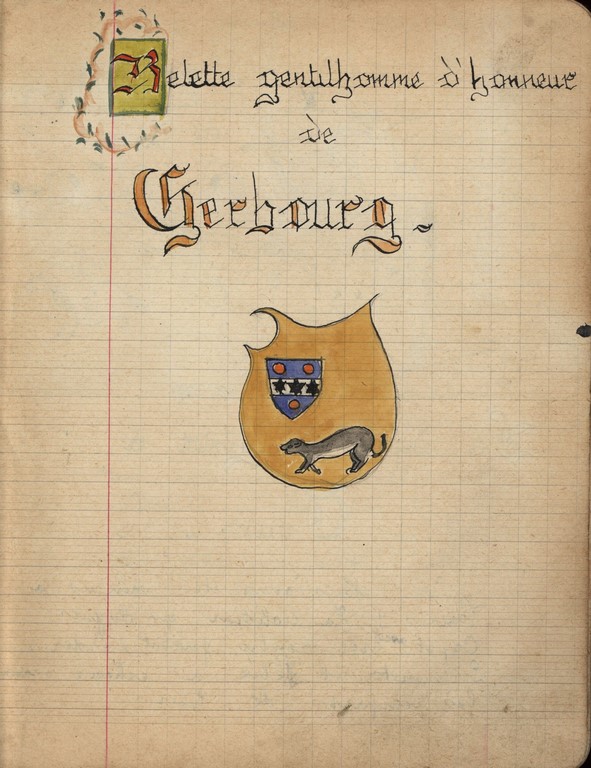 Belette gentilhomme d'honneur
de
Cherbourg.